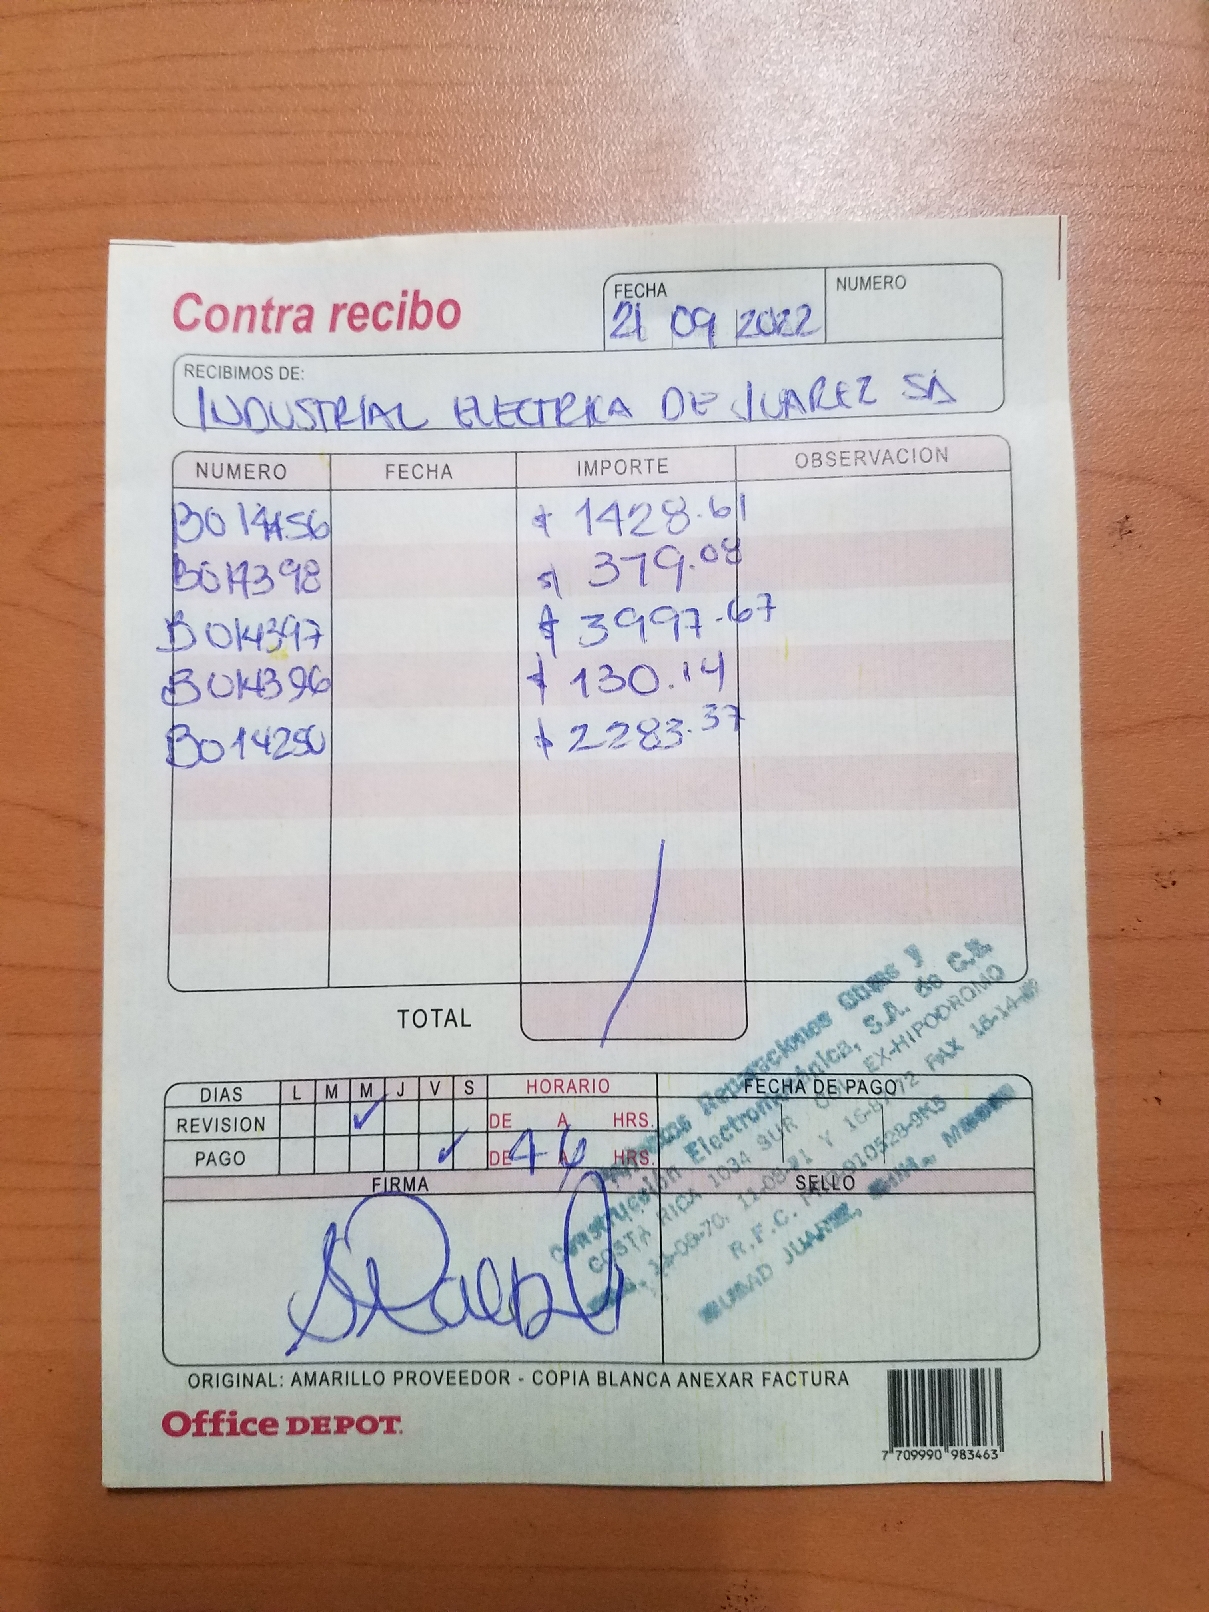 Contra recibo
FECHA
21 09 2022
NUMERO
RECIBIMOS DE:
INDUSTRIAL ELECTRICA DE JUAREZ SA
NUMERO FECHA IMPORTE OBSERVACION
B014456 $ 1428.61
B014398 $ 379.08
B014397 $ 3997.67
B014396 $ 130.14
B014250 $ 2283.37
TOTAL
DIAS L M M J V S HORARIO FECHA DE PAGO
REVISION DE A HRS.
PAGO DE 4 A 6 HRS.
FIRMA SELLO
Reparaciones y
Construcción Electromecánica, S.A. de C.V.
COSTA RICA 1034 SUR COL. EX-HIPODROMO
Y FAX
R.F.C.
CIUDAD JUAREZ, CHIH., MEXICO
ORIGINAL: AMARILLO PROVEEDOR - COPIA BLANCA ANEXAR FACTURA
Office DEPOT.
7 709990 983463